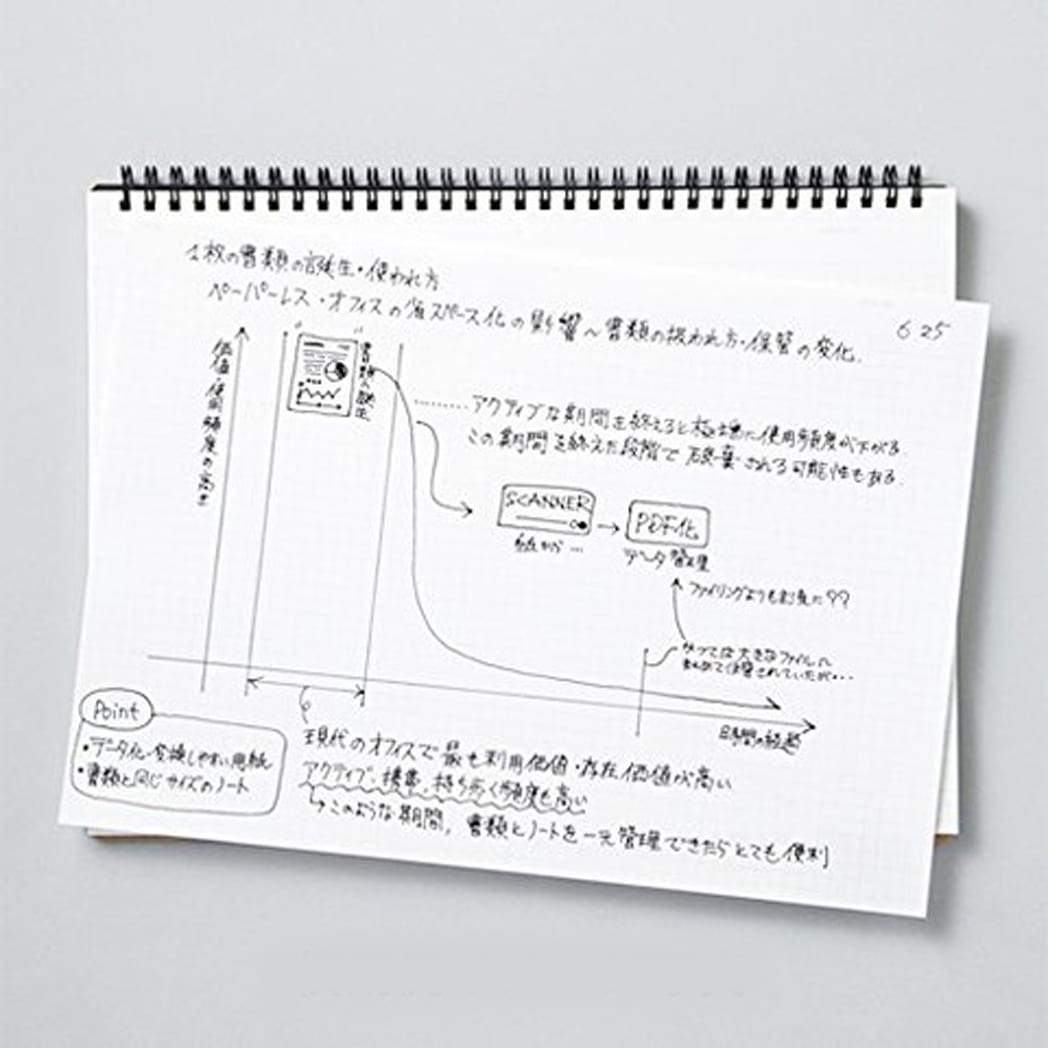 1枚の書類の誕生・使われ方
ペーパーレス・オフィスの省スペース化の影響〜書類の扱われ方・保管の変化.
6 25
価値・使用頻度の高さ
"書類の誕生"
………アクティブな期間を終えると極端に使用頻度が下がる
この期間を終えた段階で破棄される可能性もある.
SCANNER
PDF化
紙から…
データ管理
ファイリングよりも身近に??
かつては大きなファイルに
まとめて保管されていたが…
時間の経過
Point
・データ化・変換しやすい用紙
・書類と同じサイズのノート
現代のオフィスで最も利用価値・存在価値が高い
アクティブ、携帯、持ち歩く頻度も高い
↳このような期間, 書類とノートを一元管理できたらとても便利